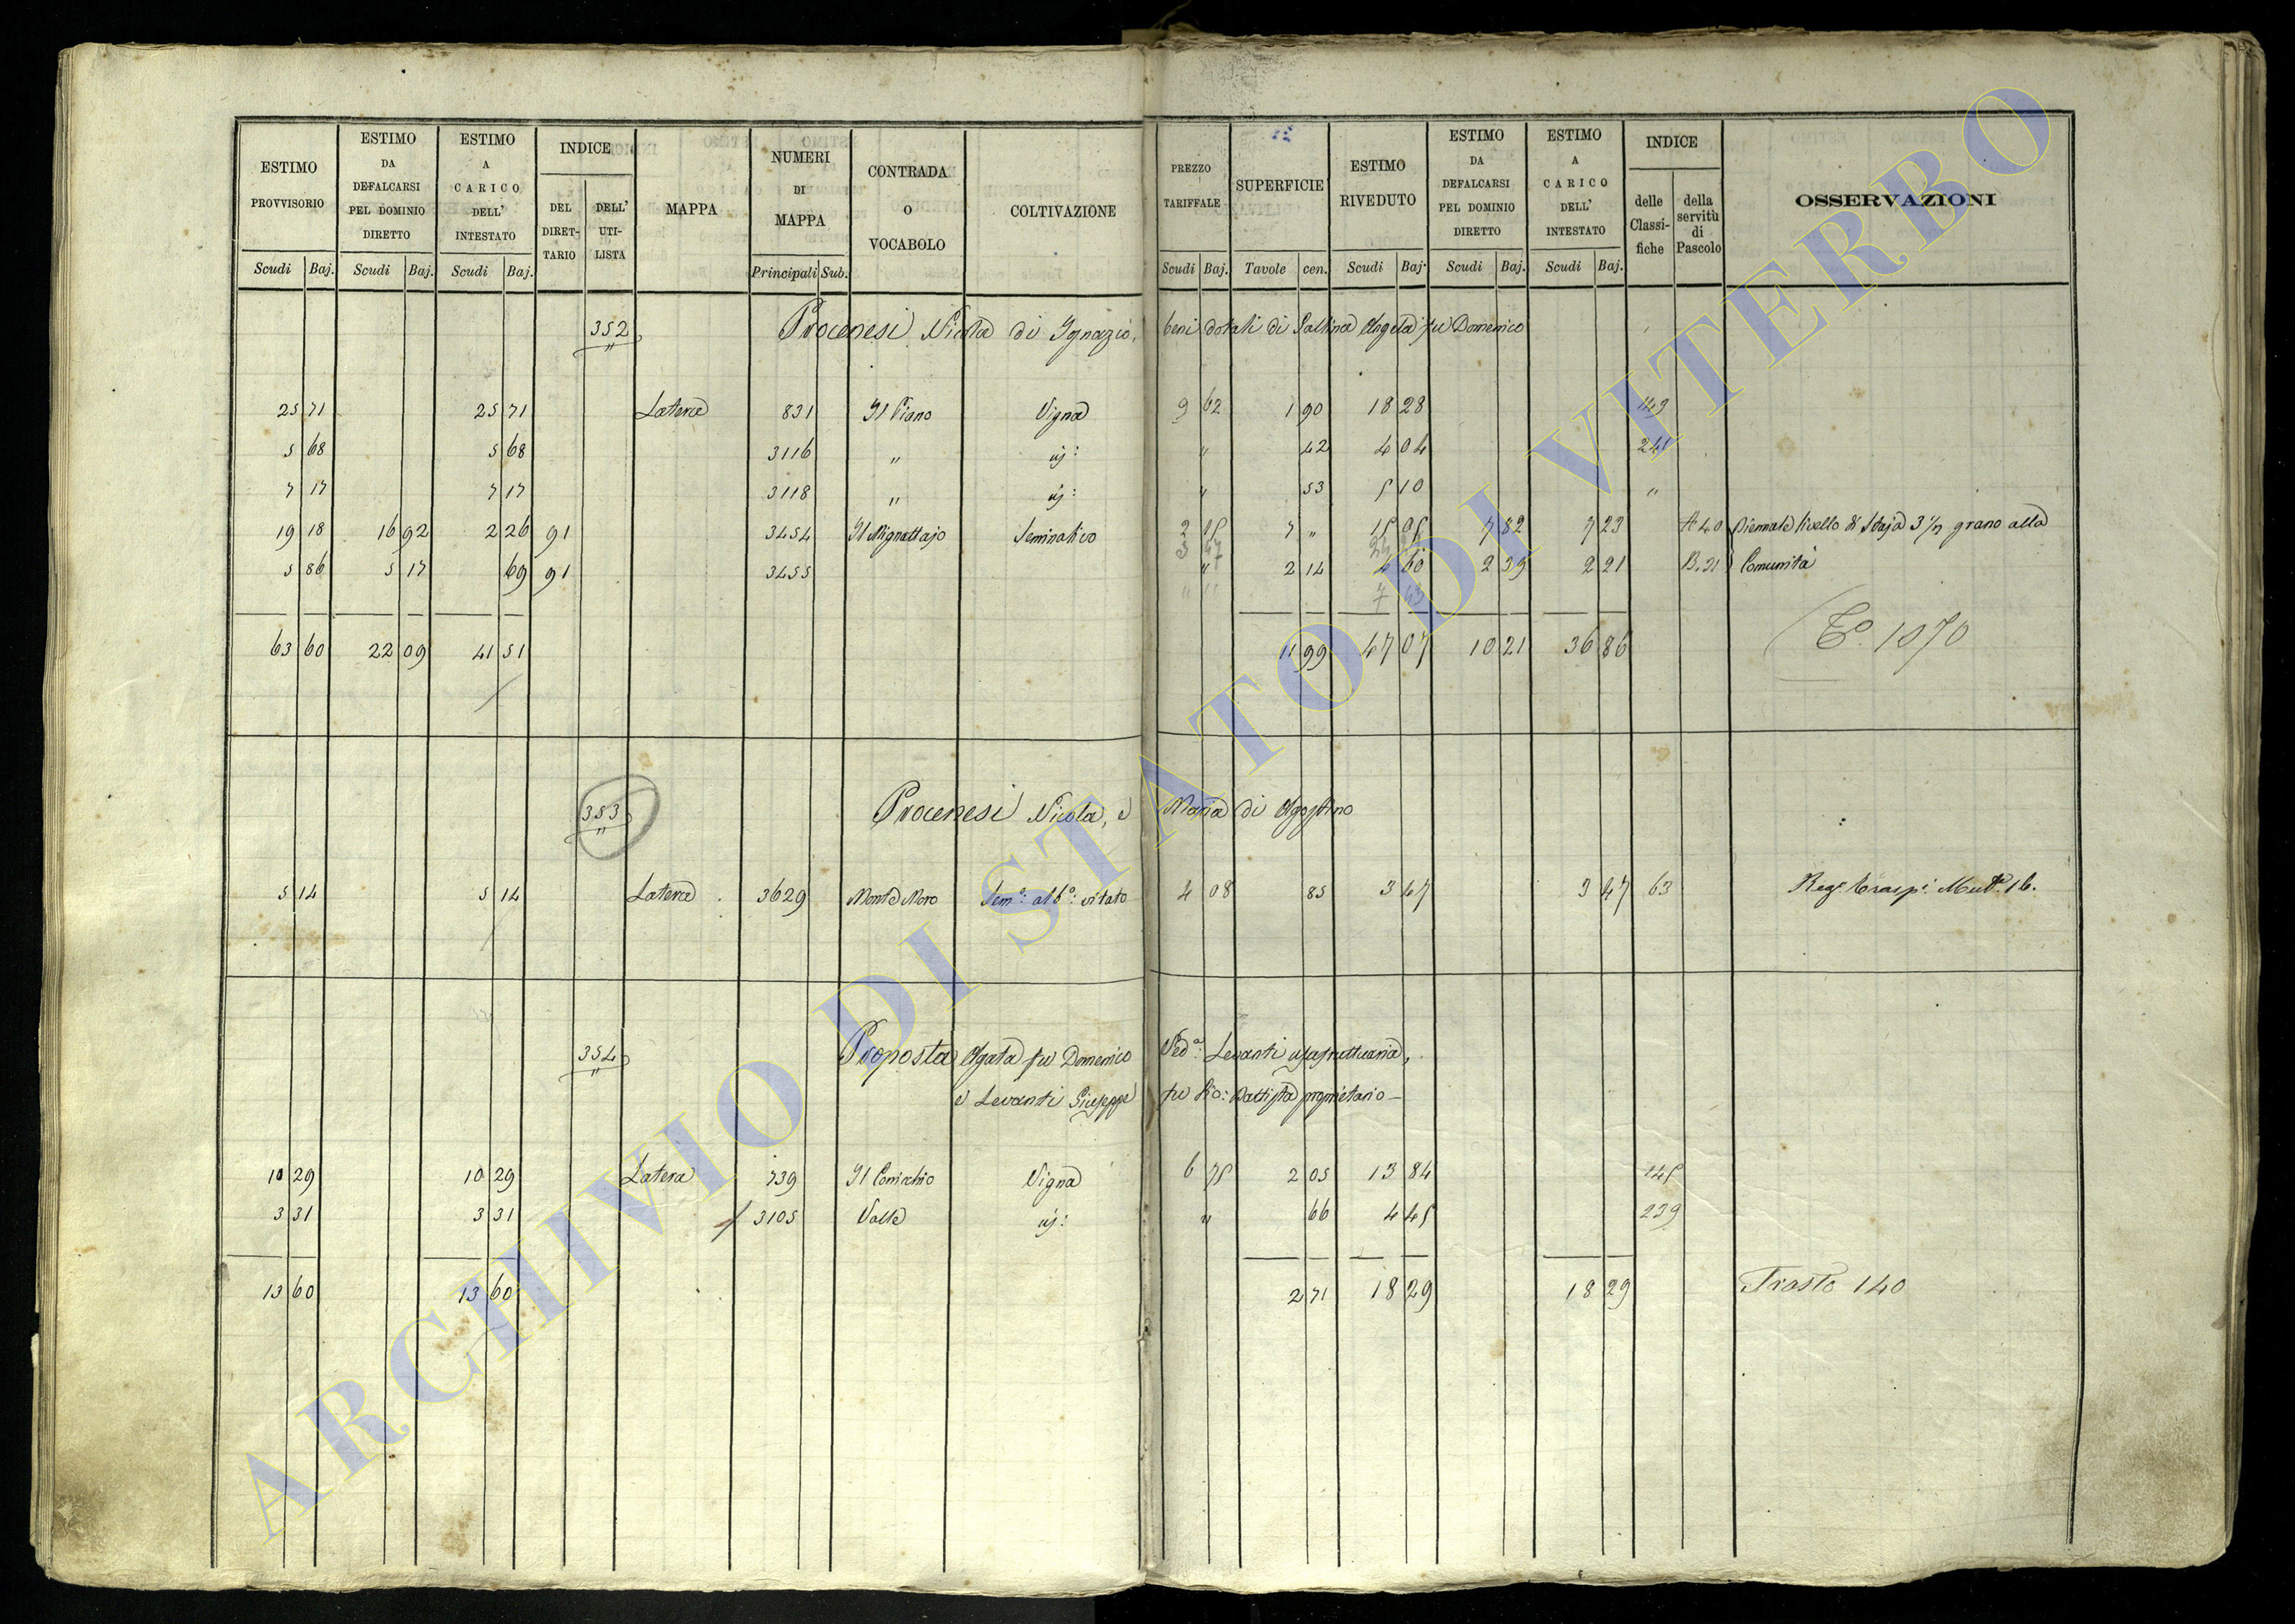 ESTIMO PROVVISORIO | ESTIMO DA DEFALCARSI PEL DOMINIO DIRETTO | ESTIMO A CARICO DELL' INTESTATO | INDICE DEL DIRET-TARIO | DELL' UTI-LISTA | MAPPA | NUMERI DI MAPPA | CONTRADA O VOCABOLO | COLTIVAZIONE | PREZZO TARIFFALE | SUPERFICIE | ESTIMO RIVEDUTO | ESTIMO DA DEFALCARSI PEL DOMINIO DIRETTO | ESTIMO A CARICO DELL' INTESTATO | INDICE delle Classi-fiche | della servitù di Pascolo | OSSERVAZIONI
Scudi Baj. | Scudi Baj. | Scudi Baj. | Principali Sub. | Scudi Baj. | Tavole cen. | Scudi Baj. | Scudi Baj. | Scudi Baj.
352 Procenesi Nicola di Ignazio, beni dotali di Angela fu Domenico
25 71 | 25 71 | Latera | 831 | Il Piano | Vigna | 9 62 | 1 90 | 18 28 | 149
5 68 | 5 68 | 3116 | " | id: | " | 42 | 4 04 | 241
7 17 | 7 17 | 3118 | " | id: | " | 53 | 5 10 | "
19 18 | 16 92 | 2 26 | 91 | 3454 | Il Mignattajo | Seminativo | 2 15 | 7 " | 15 05 | 7 82 | 7 23 | A 40 | Biennale livello di Staja 3 1/2 grano alla
5 86 | 5 17 | 69 | 91 | 3455 | " | 2 14 | 4 60 | 2 39 | 2 21 | B. 21 | Comunità
63 60 | 22 09 | 41 51 | 11 99 | 47 07 | 10 21 | 36 86 | 1070
353 Procenesi Nicola, e Maria di Agostino
5 14 | 5 14 | Latera | 3629 | Monte Moro | Sem.o: alb.o: vitato | 4 08 | 85 | 3 47 | 3 47 | 63 | Reg. Trasp.i 16.
354 Proposta Agata fu Domenico Ved.a: Levanti usufruttuaria,
e Levanti Giuseppe fu Gio: Battista proprietario —
10 29 | 10 29 | Latera | 739 | Il | Vigna | 6 75 | 2 05 | 13 84 | 145
3 31 | 3 31 | 3105 | Valle | id: | " | 66 | 4 45 | 239
13 60 | 13 60 | 2 71 | 18 29 | 18 29 | Trasto 140
ARCHIVIO DI STATO DI VITERBO